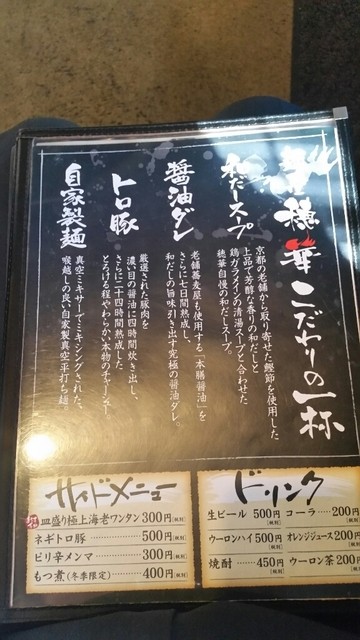 穂華こだわりの一杯
和だしスープ
京都の老舗から取り寄せた鰹節を使用した
上品で芳醇な香りの和だしと
鶏ガラメインの清湯スープと合わせた
穂華自慢の和だしスープ。
醤油ダレ
老舗蕎麦屋も使用する「本膳醤油」を
さらに七日間熟成し、
和だしの旨味引き出す究極の醤油ダレ。
トロ豚
厳選された豚肉を
濃い目の醤油に四時間炊き出し、
さらに二十四時間熟成した
とろける程やわらかい本物のチャーシュー。
自家製麺
真空ミキサーでミキシングされた、
喉越しの良い自家製真空平打ち麺。
サイドメニュー
皿盛り極上海老ワンタン 300円(税別)
ネギトロ豚 500円(税別)
ピリ辛メンマ 300円(税別)
もつ煮(冬季限定) 400円(税別)
ドリンク
生ビール 500円(税別) コーラ 200円
ウーロンハイ 500円(税別) オレンジジュース 200円
焼酎 450円(税別) ウーロン茶 200円